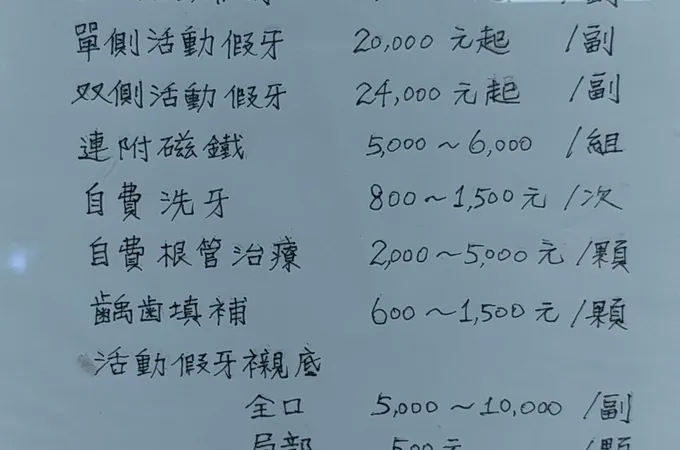 單側活動假牙 20,000 元起 /副
双側活動假牙 24,000 元起 /副
連附磁鐵 5,000～6,000 /組
自費洗牙 800～1,500元 /次
自費根管治療 2,000～5,000元 /顆
齲齒填補 600～1,500元 /顆
活動假牙襯底
全口 5,000～10,000 /副
局部 500元 /顆